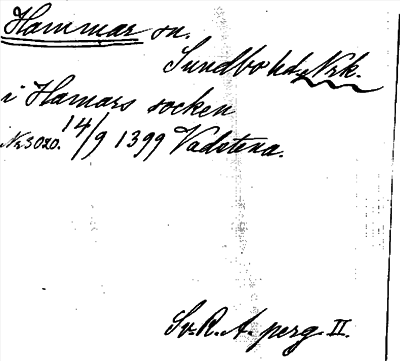 Hammar sn.
Sundbo hd, Nrk.
i Hamars socken
Nr 3020. 14/9 1399 Vadstena.
Sv. R. A. perg II.